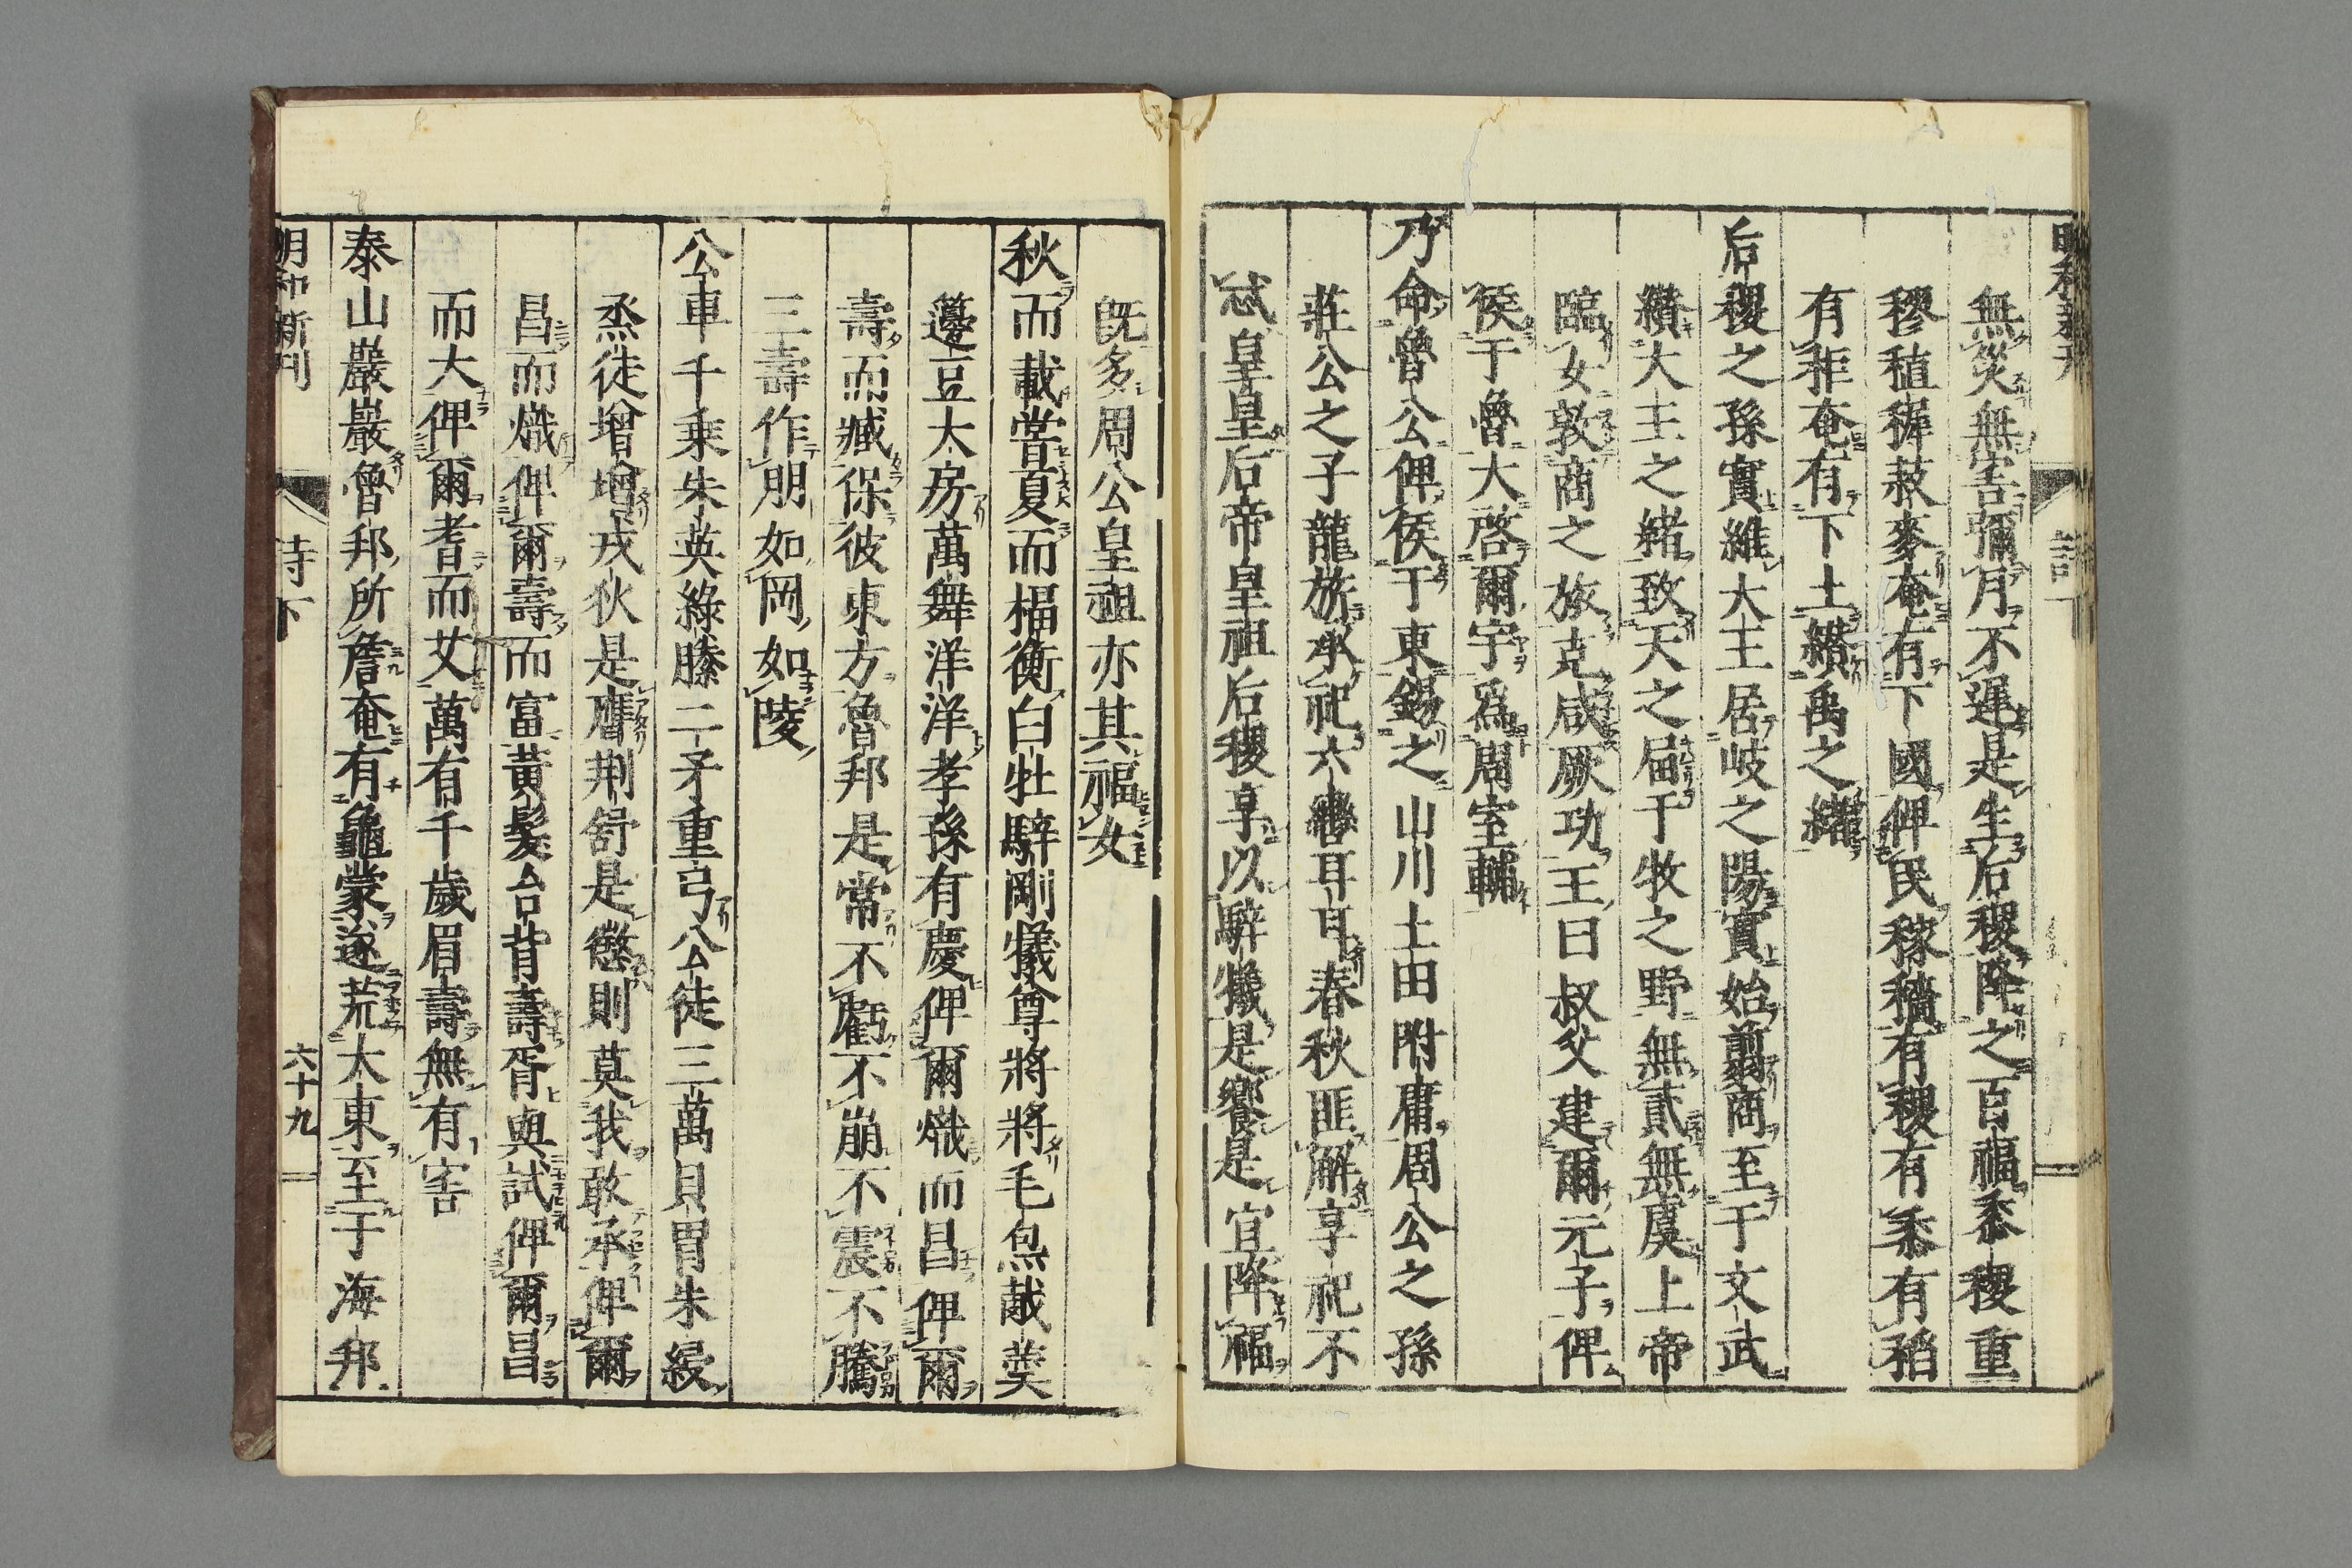 無災無害彌月不遲是生后稷降之百福黍稷重
穋稙穉菽麥奄有下國俾民稼穡有稷有黍有稻
有秬奄有下土纘禹之緖
后稷之孫實維大王居岐之陽實始翦商至于文武
纘大王之緖致天之届于牧之野無貳無虞上帝
臨女敦商之旅克咸厥功王曰叔父建爾元子俾
侯于魯大啓爾宇爲周室輔
乃命魯公俾侯于東錫之山川土田附庸周公之孫
莊公之子龍旂承祀六轡耳耳春秋匪解享祀不
忒皇皇后帝皇祖后稷享以騂犧是饗是宜降福
既多周公皇祖亦其福女
秋而載嘗夏而楅衡白牡騂剛犧尊將將毛炰胾羹
籩豆大房萬舞洋洋孝孫有慶俾爾熾而昌俾爾
壽而臧保彼東方魯邦是常不虧不崩不震不騰
三壽作朋如岡如陵
公車千乗朱英綠縢二矛重弓公徒三萬貝冑朱綅
烝徒增增戎狄是膺荆舒是懲則莫我敢承俾爾
昌而熾俾爾壽而富黃髮台背壽胥與試俾爾昌
而大俾爾耆而艾萬有千歲眉壽無有害
泰山巖巖魯邦所詹奄有龜蒙遂荒大東至于海邦
明和新刊
詩下
六十九